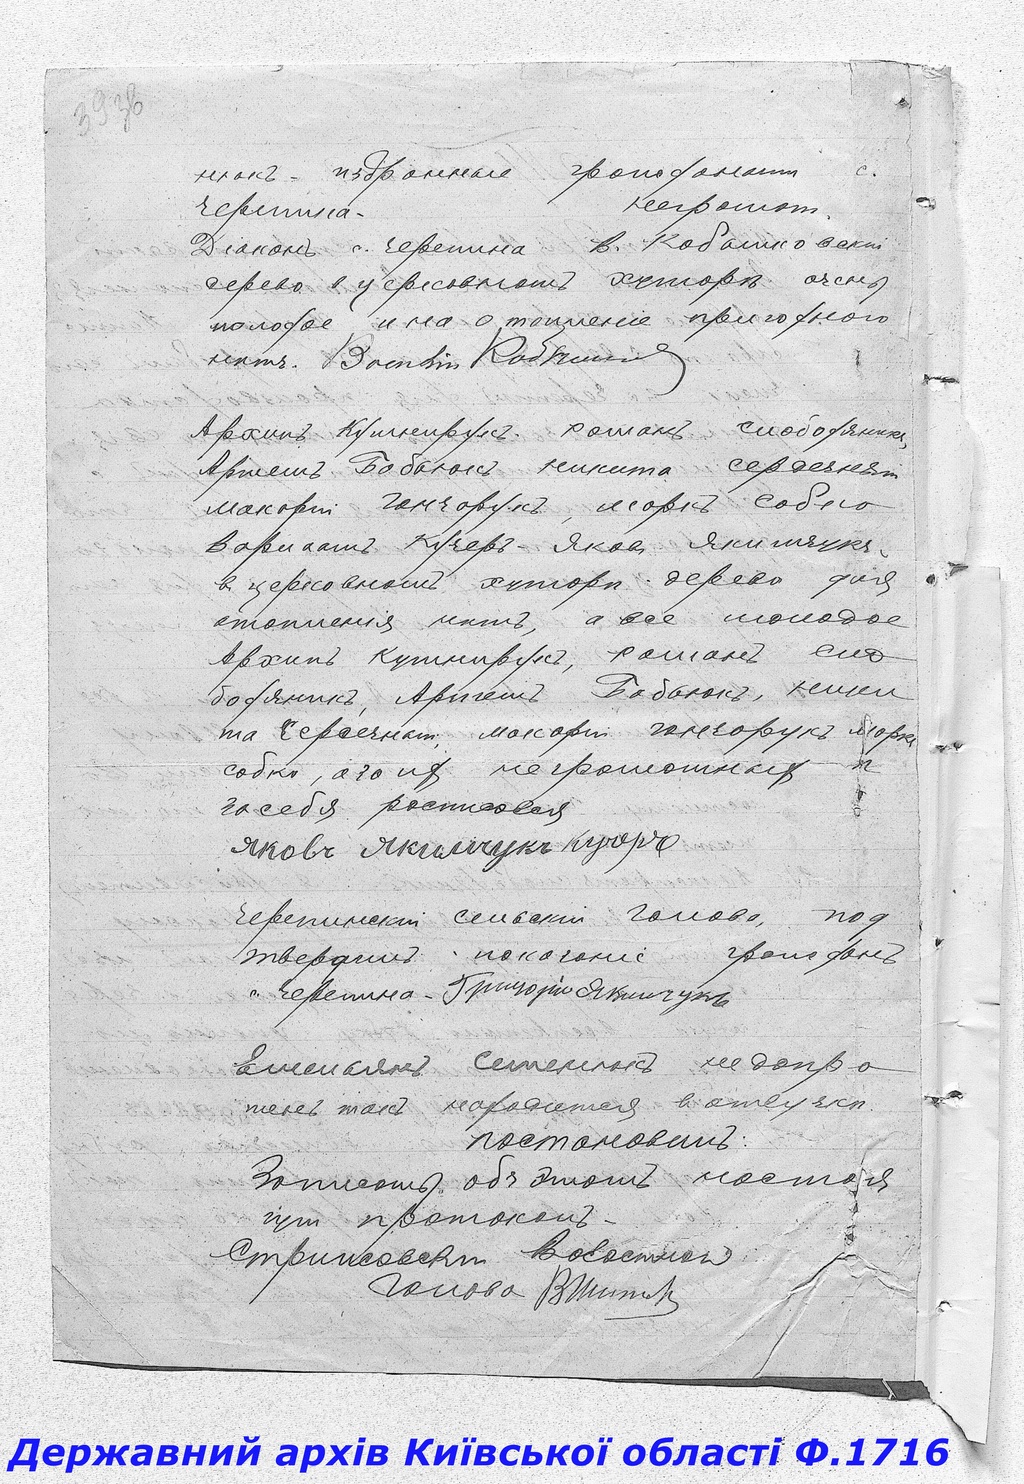 393в
нюкъ - избранные громодяномъ с.
Черепина - неграмот.
Діаконъ с. Черепина В. Кобылковскій
дерево в церковномъ хуторѣ очень
молодое и на отопленіе пригодного
нетъ.
Архипъ Кушнирукъ. Романъ Слободяникъ,
Артемъ Бабьюкъ Никита Сердечный
Макарій Гончарукъ, Маркъ Собко
Варлаамъ Кучеръ - Яковъ Якимчукъ.
в церковномъ хуторѣ. дерево для
отопленія нетъ, а все молодое
Архипъ Кушнирукъ, Романъ Сло
бодяникъ, Артемъ Бабьюкъ, Ники
та Сердечный, Макарій Гончарукъ Маркъ
Собко, а за ихъ неграмотныхъ и
за себя росписался
Яковъ Якимчукъ Кучеръ
Черепинскій сельскій Голова, под
твердилъ показаніе громодянъ
с. Черепина - Григорій Якимчукъ
Емельянъ Семенюкъ не допро
шенъ такъ находится в отлучки.
Постановилъ:
Записать объ этомъ настоя
щій протоколъ -
Стрижовскій Волостной
Голова
Державний архів Київської області Ф.1716